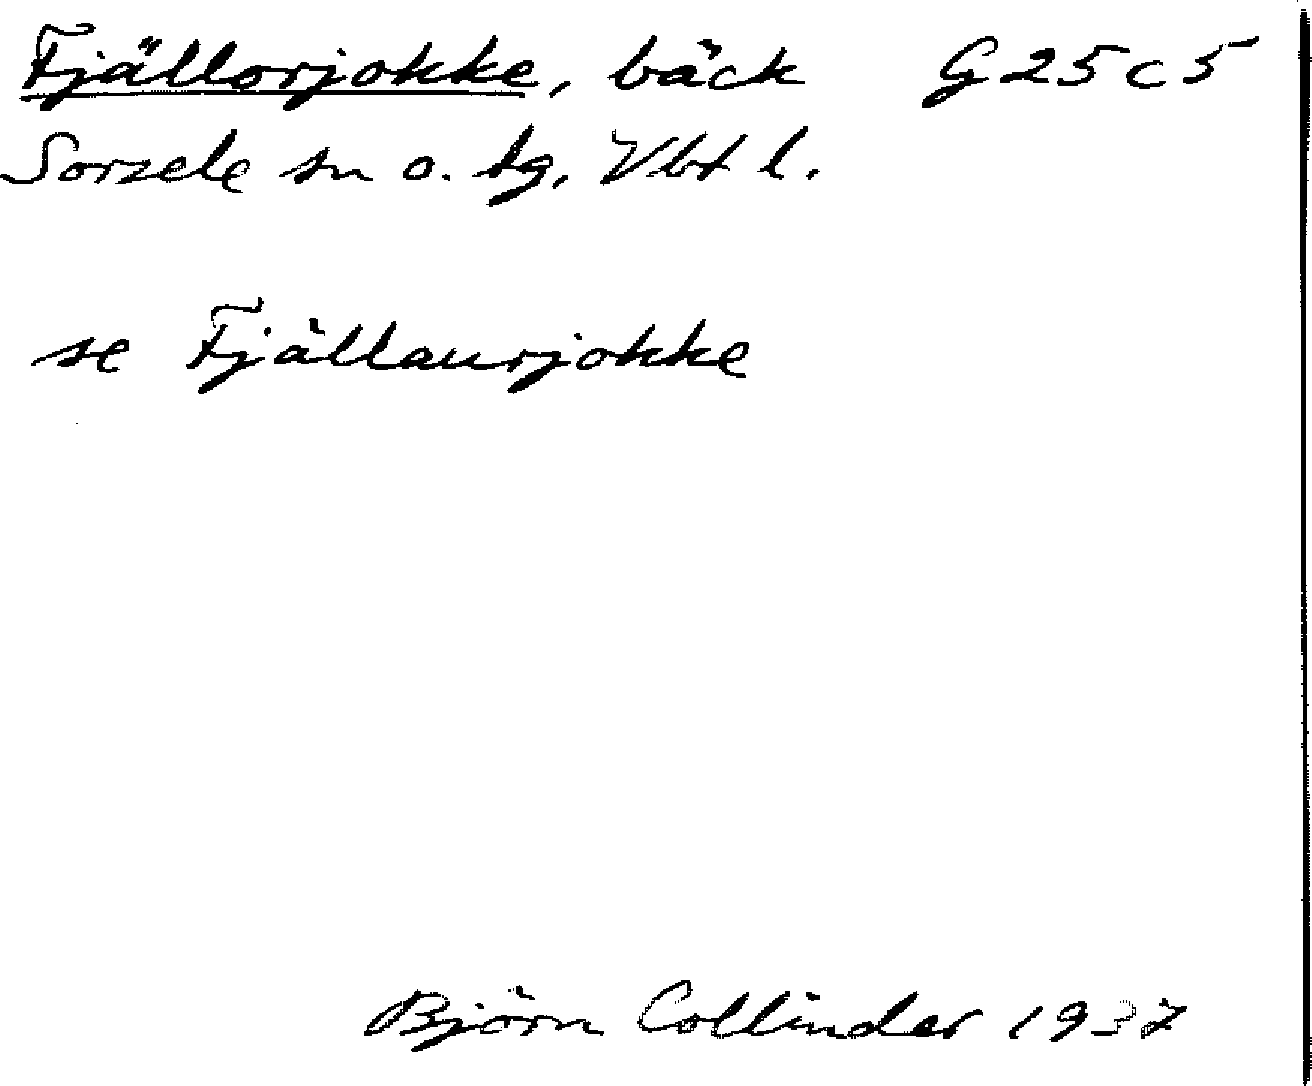 Fjällorjokke, bäck G25c5
Sorsele sn o. tg, Vbt l.
se Fjällaurjokke
Björn Collinder 1937